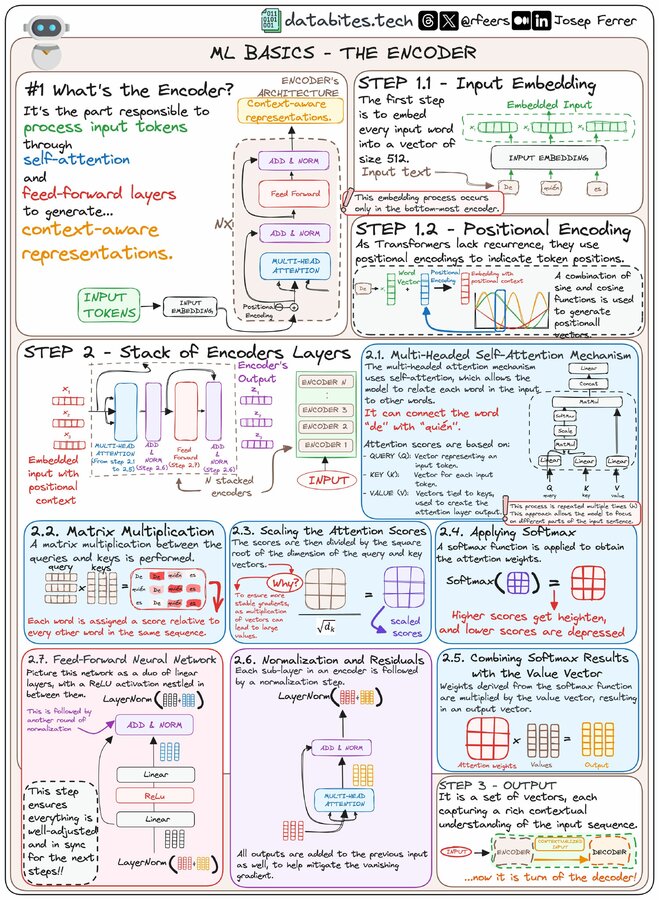 databites.tech @rfeers Josep Ferrer
ML BASICS - THE ENCODER
#1 What's the Encoder?
It's the part responsible to
process input tokens
through
self-attention
and
feed-forward layers
to generate...
context-aware
representations.
ENCODER's
ARCHITECTURE
Context-aware
representations.
ADD & NORM
Feed Forward
NX
ADD & NORM
MULTI-HEAD
ATTENTION
Positional
Encoding
INPUT
TOKENS
INPUT
EMBEDDING
STEP 1.1 - Input Embedding
The first step
is to embed
every input word
into a vector of
size 512.
Embedded Input
INPUT EMBEDDING
Input text
De
quién
es
This embedding process occurs
only in the bottom-most encoder.
STEP 1.2 - Positional Encoding
As Transformers lack recurrence, they use
positional encodings to indicate token positions.
De
Word
Vector
Positional
Encoding
Embedding with
positional context
A combination of
sine and cosine
functions is used
to generate
positional
vectors.
STEP 2 - Stack of Encoders Layers
X₁
X₂
X₃
Embedded
input with
positional
context
MULTI-HEAD
ATTENTION
(From step 2.1
to 2.5)
ADD &
NORM
(Step 2.6)
Feed
Forward
(Step 2.7)
ADD &
NORM
(Step 2.6)
Encoder's
Output
Z₁
Z₂
Z₃
N stacked
encoders
ENCODER N
ENCODER 3
ENCODER 2
ENCODER 1
INPUT
2.1. Multi-Headed Self-Attention Mechanism
The multi-headed attention mechanism
uses self-attention, which allows the
model to relate each word in the input
to other words.
It can connect the word
"de" with "quién".
Attention scores are based on:
- QUERY (Q): Vector representing an
input token.
- KEY (K): Vector for each input
token.
- VALUE (V): Vectors tied to keys,
used to create the
attention layer output.
Linear
Concat
MatMul
SoftMax
Scale
MatMul
Linear
Linear
Linear
Q
query
K
key
V
value
This process is repeated multiple times (n)
This approach allows the model to focus
on different parts of the input sentence.
2.2. Matrix Multiplication
A matrix multiplication between the
queries and keys is performed.
query
keys
x
=
De De quién es
quién De quién es
es De quién es
Each word is assigned a score relative to
every other word in the same sequence.
2.3. Scaling the Attention Scores
The scores are then divided by the square
root of the dimension of the query and key
vectors.
Why?
To ensure more
stable gradients,
as multiplication
of vectors can
lead to large
values.
√dk
=
scaled
scores
2.4. Applying Softmax
A softmax function is applied to obtain
the attention weights.
Softmax( ) =
Higher scores get heighten,
and lower scores are depressed
2.7. Feed-Forward Neural Network
Picture this network as a duo of linear
layers, with a ReLU activation nestled in
between them.
LayerNorm( + )
This is followed by
another round of
normalization
ADD & NORM
Linear
ReLu
Linear
LayerNorm( + )
This step
ensures
everything is
well-adjusted
and in sync
for the next
steps!!
2.6. Normalization and Residuals
Each sub-layer in an encoder is followed
by a normalization step.
LayerNorm( + )
ADD & NORM
MULTI-HEAD
ATTENTION
All outputs are added to the previous input
as well, to help mitigate the vanishing
gradient.
2.5. Combining Softmax Results
with the Value Vector
Weights derived from the softmax function
are multiplied by the value vector, resulting
in an output vector.
x
=
Attention weights
Values
Output
STEP 3 - OUTPUT
It is a set of vectors, each
capturing a rich contextual
understanding of the input sequence.
INPUT
ENCODER
CONTEXTUALIZED
INPUT
DECODER
...now it is turn of the decoder!